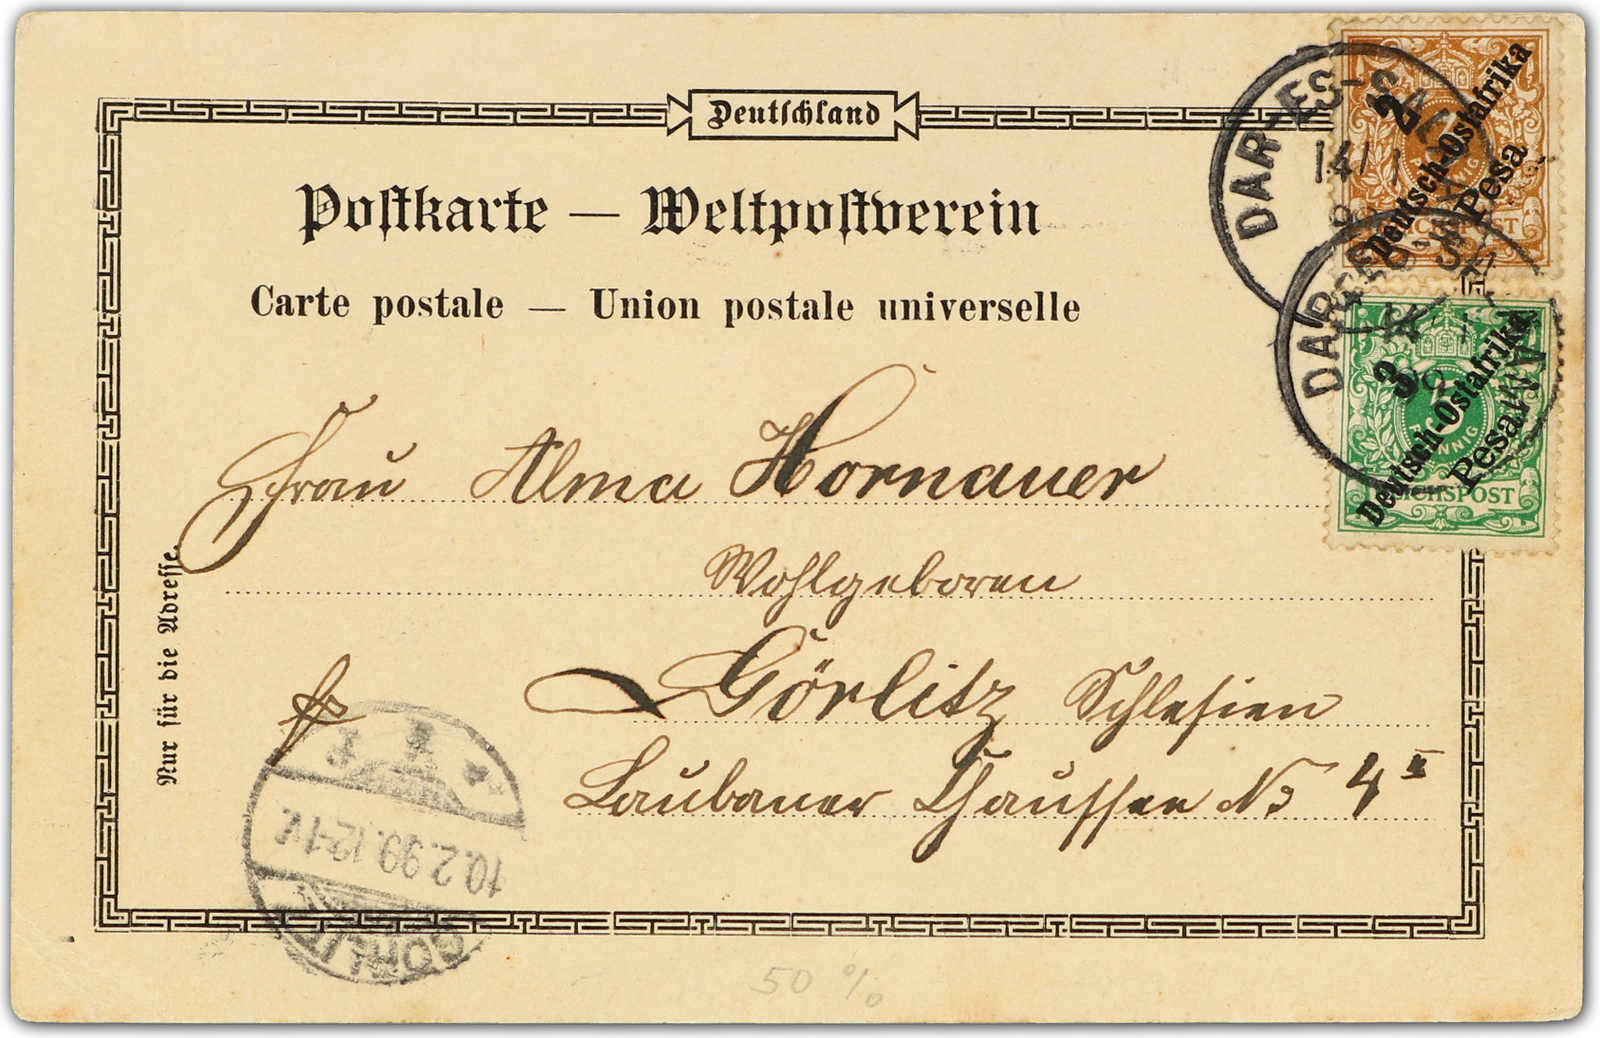 Deutschland
Postkarte — Weltpostverein
Carte postale — Union postale universelle
Frau Alma Hornauer
Wohlgeboren
Görlitz Schlesien
Laubaner Chaussee No 4 II
Nur für die Adresse.
DAR-ES-SA
14/1
2
Deutsch-Ostafrika
Pesa
REICHSPOST
DAR-ES-SALAAM
14/1
3
5
PFENNIG
Deutsch-Ostafrika
Pesa
REICHSPOST
GÖRLITZ
10.2.99.12-1V.
50 %